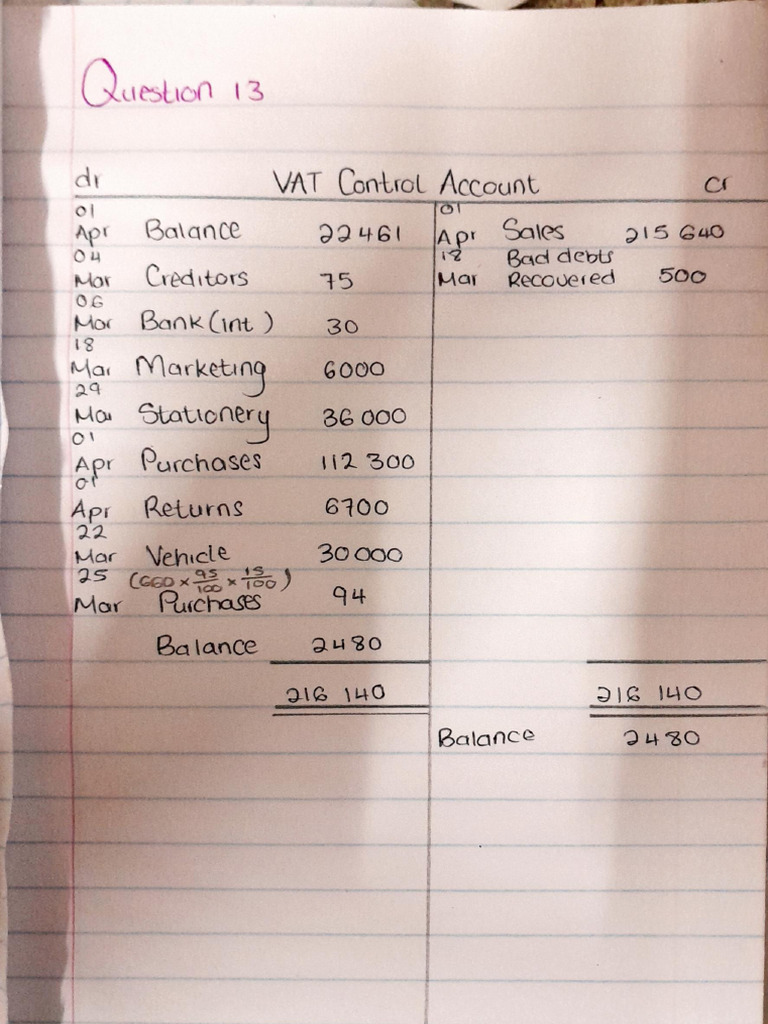 Question 13
dr VAT Control Account cr
01 Apr Balance 22 461 01 Apr Sales 215 640
04 Mar Creditors 75 18 Mar Bad debts Recovered 500
06 Mar Bank (int) 30
18 Mar Marketing 6000
29 Mar Stationery 36 000
01 Apr Purchases 112 300
01 Apr Returns 6700
22 Mar Vehicle 30 000
(660 × 95/100 × 15/100)
25 Mar Purchases 94
Balance 2480
216 140 216 140
Balance 2480